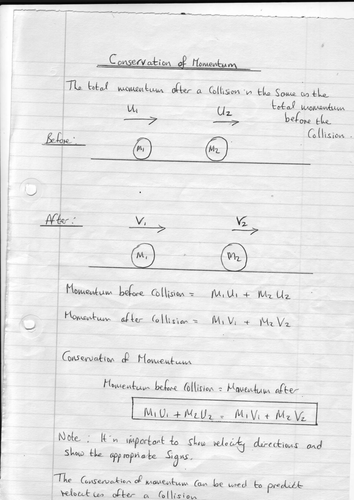 Conservation of Momentum
The total momentum after a collision is the same as the
total momentum
before the
collision.
U1 U2
Before:
M1 M2
After:
V1 V2
M1 M2
Momentum before collision = M1U1 + M2U2
Momentum after collision = M1V1 + M2V2
Conservation of Momentum
Momentum before collision = Momentum after
M1U1 + M2U2 = M1V1 + M2V2
Note: It is important to show velocity directions and
show the appropriate signs.
The conservation of momentum can be used to predict
velocities after a collision